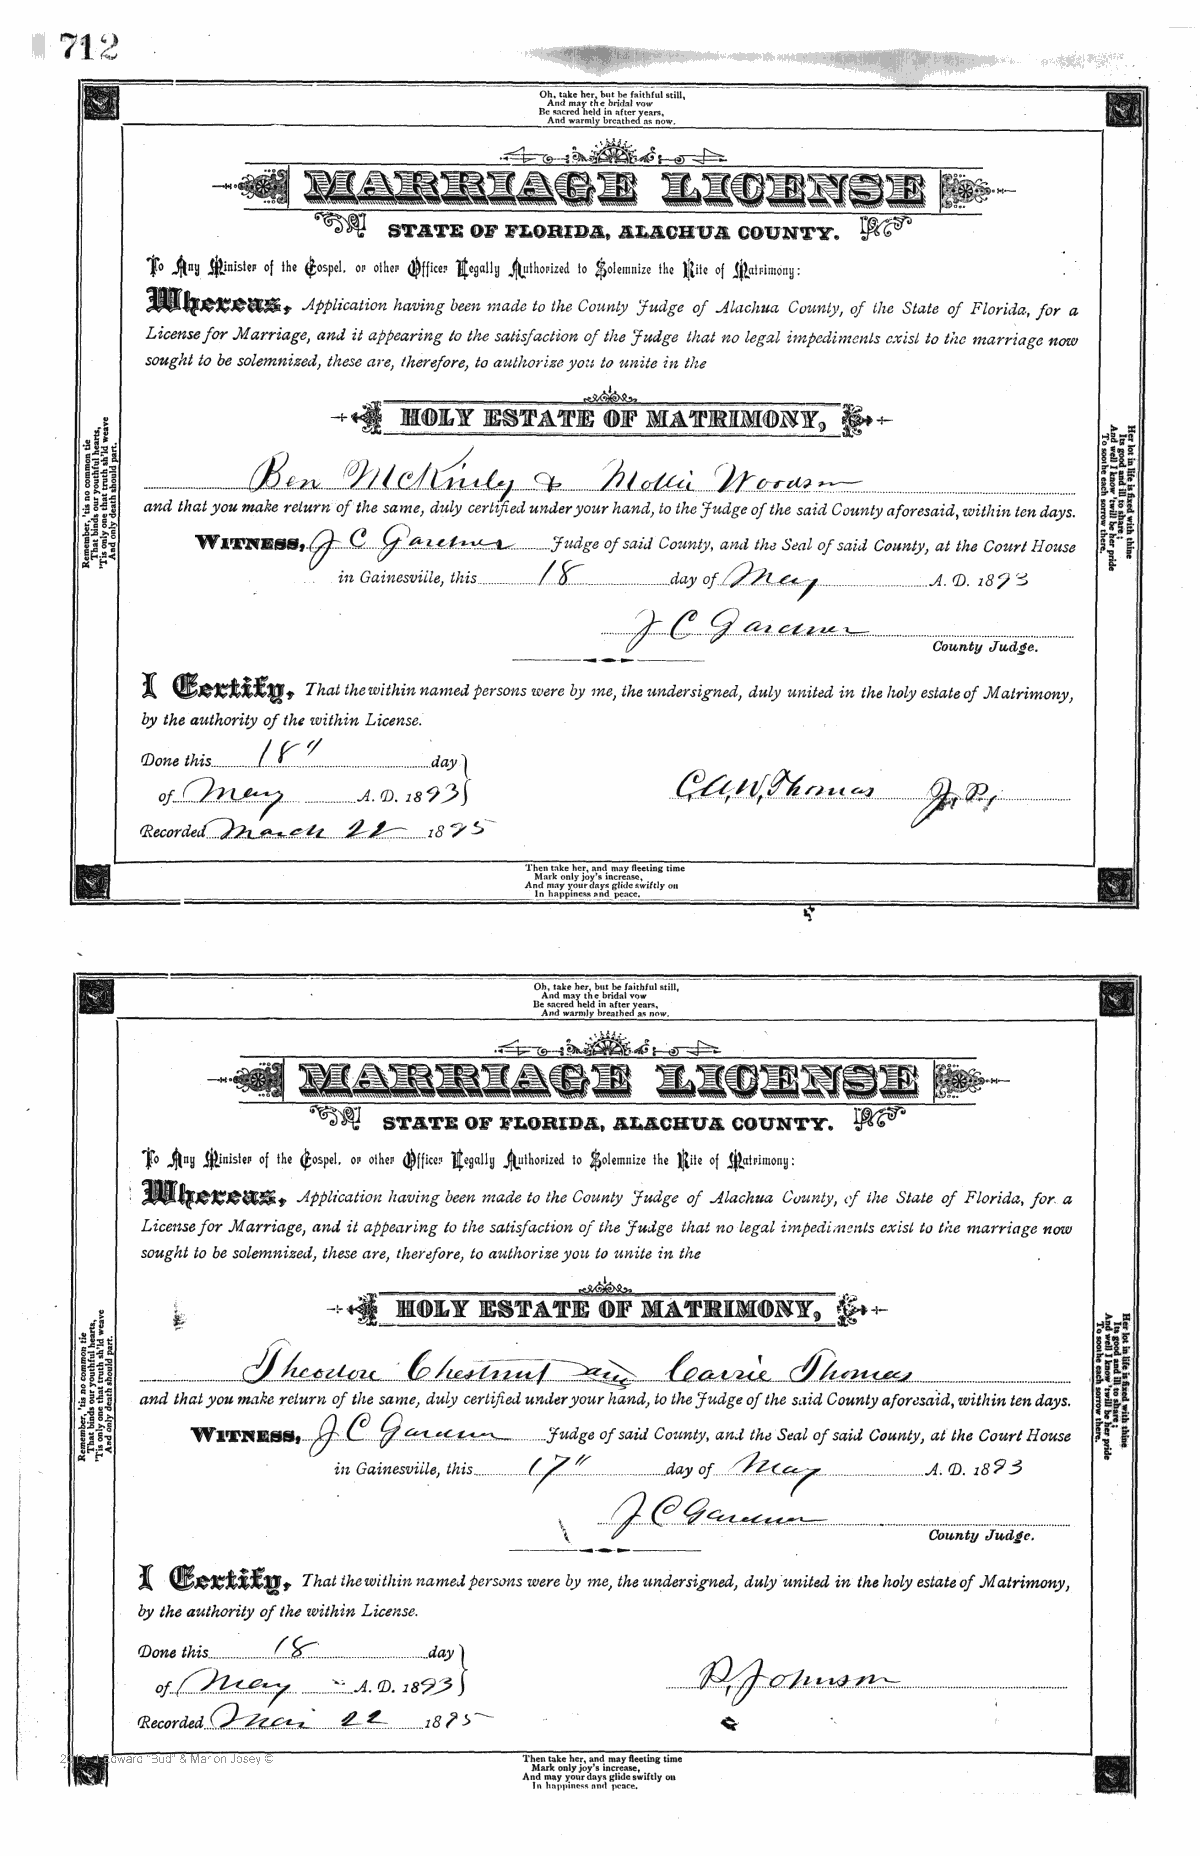 712
Oh, take her, but be faithful still,
And may the bridal vow
Be sacred held in after years,
And warmly breathed as now.
MARRIAGE LICENSE
STATE OF FLORIDA, ALACHUA COUNTY.
To Any Minister of the Gospel, or other Officer Legally Authorized to Solemnize the Rite of Matrimony:
Whereas, Application having been made to the County Judge of Alachua County, of the State of Florida, for a
License for Marriage, and it appearing to the satisfaction of the Judge that no legal impediments exist to the marriage now
sought to be solemnized, these are, therefore, to authorize you to unite in the
HOLY ESTATE OF MATRIMONY,
Ben McKinly & Mollie Woodson
and that you make return of the same, duly certified under your hand, to the Judge of the said County aforesaid, within ten days.
WITNESS, J C Gardner Judge of said County, and the Seal of said County, at the Court House
in Gainesville, this 18 day of May A. D. 1893
J C Gardner
County Judge.
I Certify, That the within named persons were by me, the undersigned, duly united in the holy estate of Matrimony,
by the authority of the within License.
Done this 18" day
of May A. D. 1893
C.A.W. Thomas J.P.
Recorded March 22 1895
Remember, 'tis no common tie
That binds our youthful hearts,
'Tis only one that truth sh'ld weave
And only death should part.
Her lot in life is fixed with thine
Its good and ill to share;
And well I know 'twill be her pride
To soothe each sorrow there.
Then take her, and may fleeting time
Mark only joy's increase,
And may your days glide swiftly on
In happiness and peace.
Oh, take her, but be faithful still,
And may the bridal vow
Be sacred held in after years,
And warmly breathed as now.
MARRIAGE LICENSE
STATE OF FLORIDA, ALACHUA COUNTY.
To Any Minister of the Gospel, or other Officer Legally Authorized to Solemnize the Rite of Matrimony:
Whereas, Application having been made to the County Judge of Alachua County, of the State of Florida, for a
License for Marriage, and it appearing to the satisfaction of the Judge that no legal impediments exist to the marriage now
sought to be solemnized, these are, therefore, to authorize you to unite in the
HOLY ESTATE OF MATRIMONY,
Theodore Chestnut and Carrie Thomas
and that you make return of the same, duly certified under your hand, to the Judge of the said County aforesaid, within ten days.
WITNESS, J C Gardner Judge of said County, and the Seal of said County, at the Court House
in Gainesville, this 17" day of May A. D. 1893
J C Gardner
County Judge.
I Certify, That the within named persons were by me, the undersigned, duly united in the holy estate of Matrimony,
by the authority of the within License.
Done this 18 day
of May A. D. 1893
P. Johnson
Recorded Mar 22 1895
Remember, 'tis no common tie
That binds our youthful hearts,
'Tis only one that truth sh'ld weave
And only death should part.
Her lot in life is fixed with thine
Its good and ill to share;
And well I know 'twill be her pride
To soothe each sorrow there.
Edward "Bud" & Marion Josey ©
Then take her, and may fleeting time
Mark only joy's increase,
And may your days glide swiftly on
In happiness and peace.